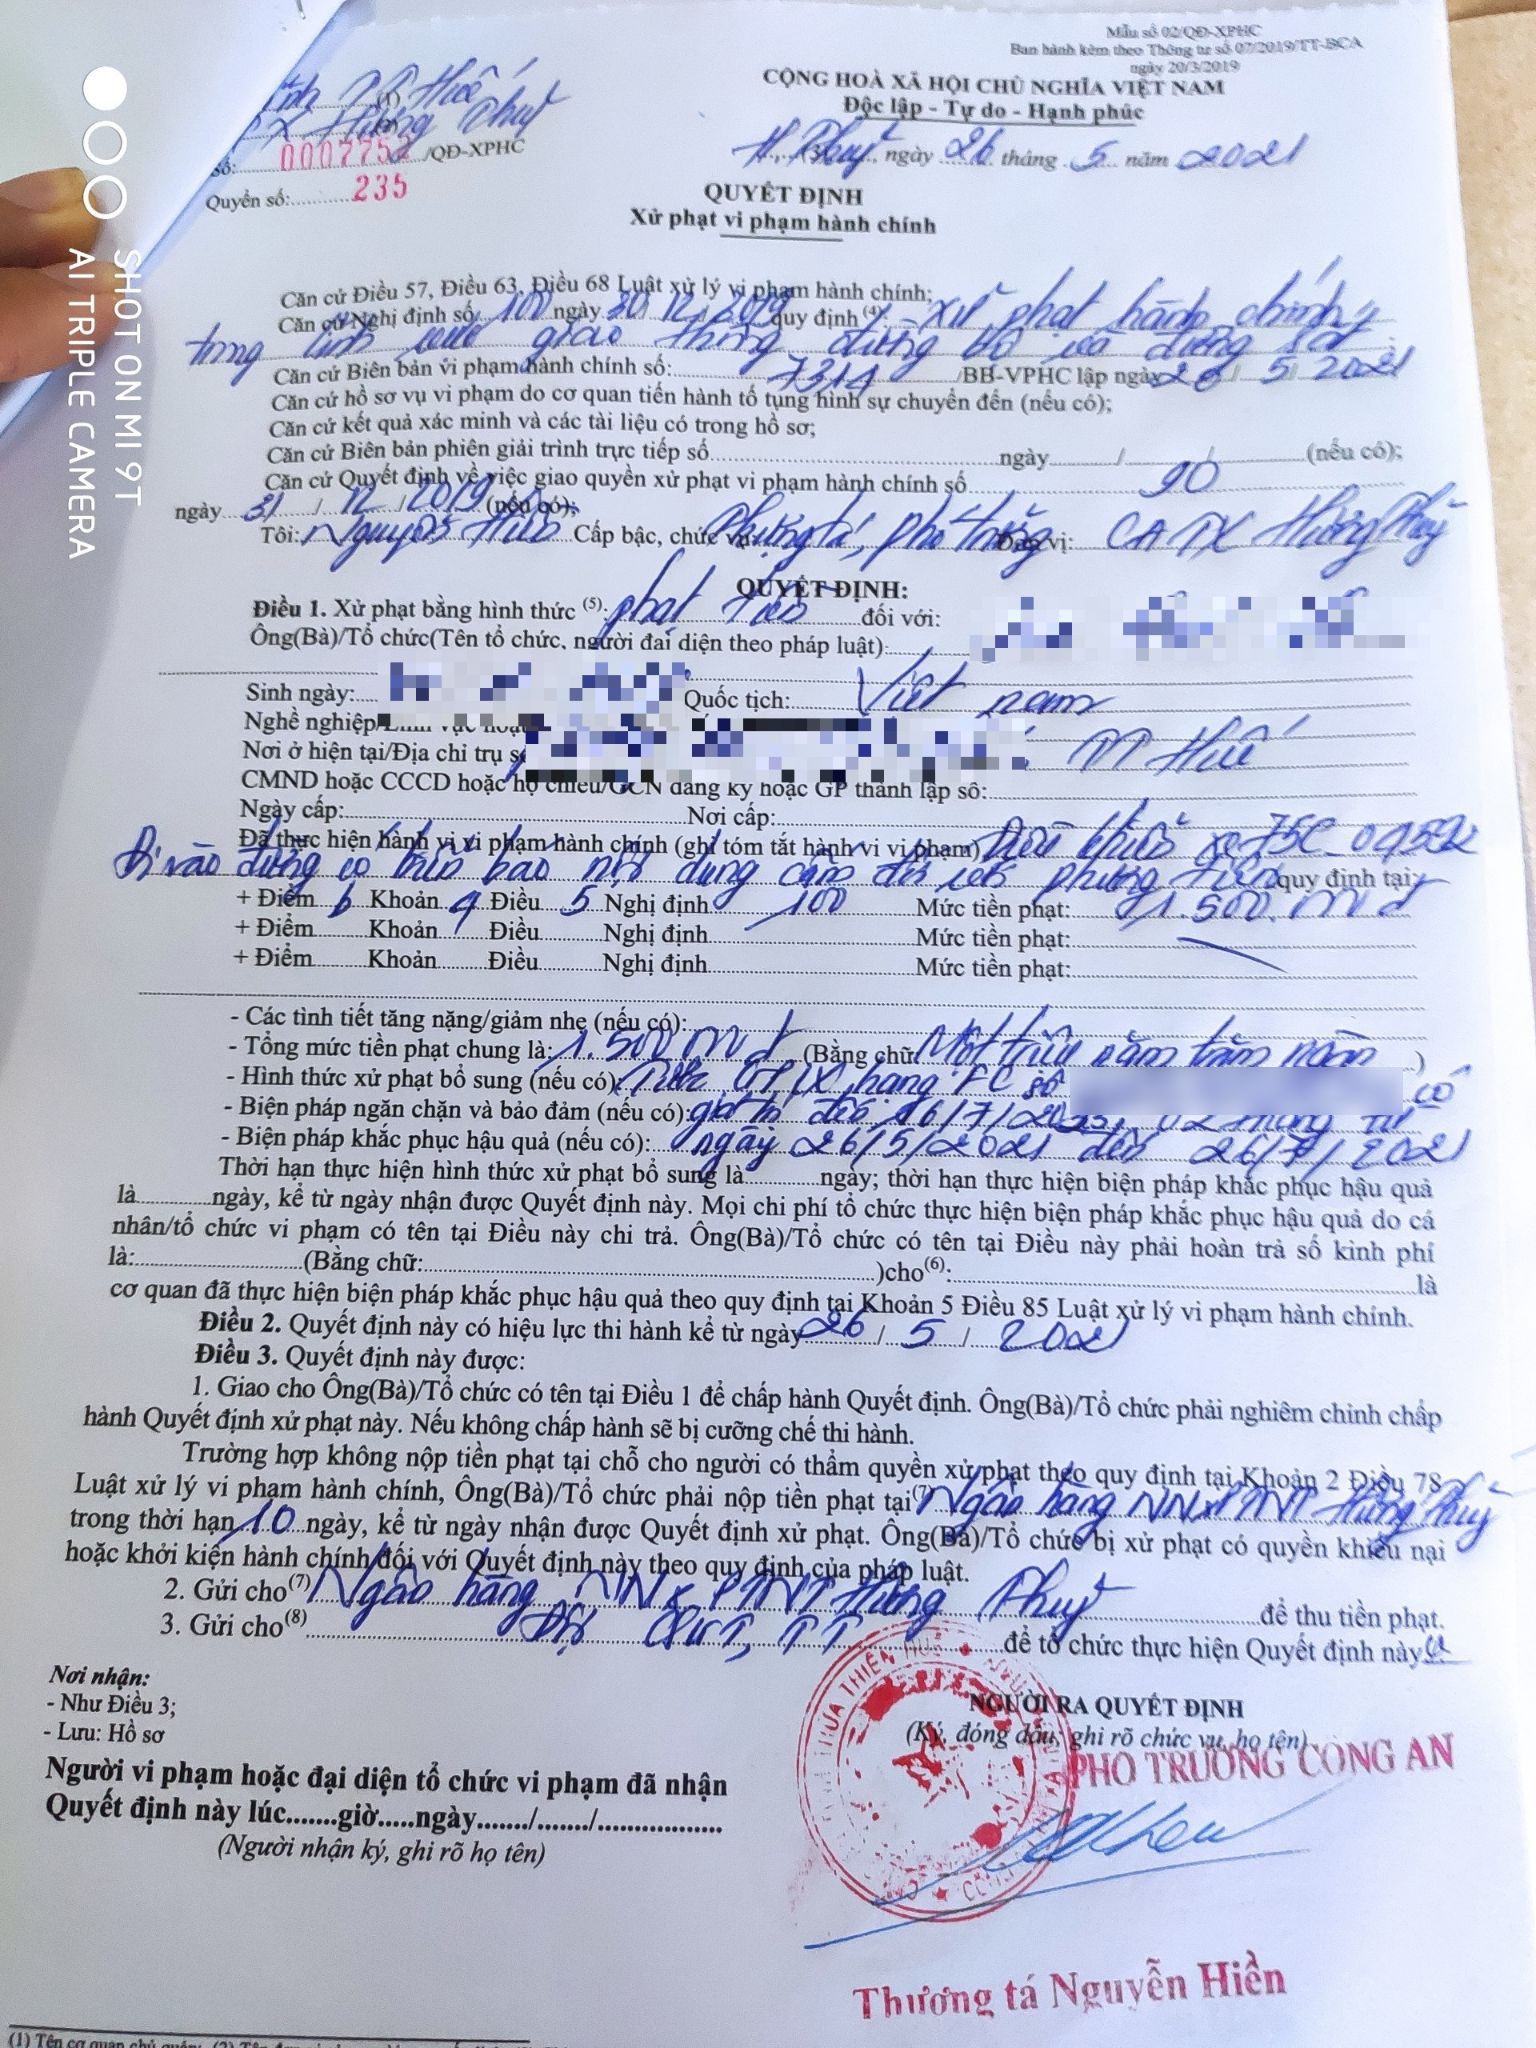 Mẫu số 02/QĐ-XPHC
Ban hành kèm theo Thông tư số 07/2019/TT-BCA
ngày 20/3/2019
CỘNG HOÀ XÃ HỘI CHỦ NGHĨA VIỆT NAM
Độc lập - Tự do - Hạnh phúc
TT Huế
TX Hương Thuỷ
H.Thuỷ, ngày 26 tháng 5 năm 2021
Số: 0007752 /QĐ-XPHC
Quyển số: 235
QUYẾT ĐỊNH
Xử phạt vi phạm hành chính
Căn cứ Điều 57, Điều 63, Điều 68 Luật xử lý vi phạm hành chính;
Căn cứ Nghị định số 100 ngày 30/12/2019 quy định (4): xử phạt hành chính
trong lĩnh vực giao thông đường bộ và đường sắt
Căn cứ Biên bản vi phạm hành chính số: 7314 /BB-VPHC lập ngày 26/5/2021
Căn cứ hồ sơ vụ vi phạm do cơ quan tiến hành tố tụng hình sự chuyển đến (nếu có);
Căn cứ kết quả xác minh và các tài liệu có trong hồ sơ;
Căn cứ Biên bản phiên giải trình trực tiếp số ngày / / (nếu có);
Căn cứ Quyết định về việc giao quyền xử phạt vi phạm hành chính số 90
ngày 31 / 12 / 2019 (nếu có);
Tôi: Nguyễn Hiền Cấp bậc, chức vụ: Thượng tá, phó trưởng Đơn vị: CA TX Hương Thuỷ
QUYẾT ĐỊNH:
Điều 1. Xử phạt bằng hình thức (5): phạt tiền đối với:
Ông(Bà)/Tổ chức(Tên tổ chức, người đại diện theo pháp luật):
Sinh ngày: Quốc tịch: Việt nam
Nghề nghiệp/Lĩnh vực hoạt
Nơi ở hiện tại/Địa chỉ trụ sở TT Huế
CMND hoặc CCCD hoặc hộ chiếu/GCN đăng ký hoặc GP thành lập số:
Ngày cấp: Nơi cấp:
Đã thực hiện hành vi vi phạm hành chính (ghi tóm tắt hành vi vi phạm) Điều khiển xe 75C_04592
Đi vào đường có biển báo nội dung cấm đối với phương tiện quy định tại
+ Điểm b Khoản 4 Điều 5 Nghị định 100 Mức tiền phạt: 1.500.m đ
+ Điểm Khoản Điều Nghị định Mức tiền phạt:
+ Điểm Khoản Điều Nghị định Mức tiền phạt:
- Các tình tiết tăng nặng/giảm nhẹ (nếu có):
- Tổng mức tiền phạt chung là: 1.500 m đ (Bằng chữ Một triệu năm trăm ngàn )
- Hình thức xử phạt bổ sung (nếu có): Tước GPLX hạng FC số có
- Biện pháp ngăn chặn và bảo đảm (nếu có): giá trị đến 16/7/2025, 02 tháng từ
- Biện pháp khắc phục hậu quả (nếu có): ngày 26/5/2021 đến 26/7/2021
Thời hạn thực hiện hình thức xử phạt bổ sung là ngày; thời hạn thực hiện biện pháp khắc phục hậu quả
là ngày, kể từ ngày nhận được Quyết định này. Mọi chi phí tổ chức thực hiện biện pháp khắc phục hậu quả do cá
nhân/tổ chức vi phạm có tên tại Điều này chi trả. Ông(Bà)/Tổ chức có tên tại Điều này phải hoàn trả số kinh phí
là: (Bằng chữ: )cho(6): là
cơ quan đã thực hiện biện pháp khắc phục hậu quả theo quy định tại Khoản 5 Điều 85 Luật xử lý vi phạm hành chính.
Điều 2. Quyết định này có hiệu lực thi hành kể từ ngày 26 / 5 / 2021
Điều 3. Quyết định này được:
1. Giao cho Ông(Bà)/Tổ chức có tên tại Điều 1 để chấp hành Quyết định. Ông(Bà)/Tổ chức phải nghiêm chỉnh chấp
hành Quyết định xử phạt này. Nếu không chấp hành sẽ bị cưỡng chế thi hành.
Trường hợp không nộp tiền phạt tại chỗ cho người có thẩm quyền xử phạt theo quy định tại Khoản 2 Điều 78
Luật xử lý vi phạm hành chính, Ông(Bà)/Tổ chức phải nộp tiền phạt tại(7) Ngân hàng NN x PTNT Hương Thuỷ
trong thời hạn 10 ngày, kể từ ngày nhận được Quyết định xử phạt. Ông(Bà)/Tổ chức bị xử phạt có quyền khiếu nại
hoặc khởi kiện hành chính đối với Quyết định này theo quy định của pháp luật.
2. Gửi cho(7) Ngân hàng NN x PTNT Hương Thuỷ để thu tiền phạt.
3. Gửi cho(8) Đội CSGT, TT để tổ chức thực hiện Quyết định này
Nơi nhận:
- Như Điều 3;
- Lưu: Hồ sơ
NGƯỜI RA QUYẾT ĐỊNH
(Ký, đóng dấu, ghi rõ chức vụ, họ tên)
PHÓ TRƯỞNG CÔNG AN
Người vi phạm hoặc đại diện tổ chức vi phạm đã nhận
Quyết định này lúc.......giờ.....ngày......./......./..................
(Người nhận ký, ghi rõ họ tên)
Thượng tá Nguyễn Hiền
SHOT ON MI 9T
AI TRIPLE CAMERA